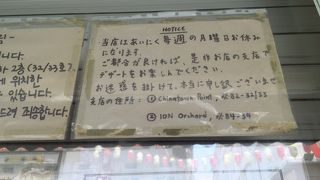 NOTICE
・当店はあいにく毎週の月曜日お休み
になります。
ご都合が良ければ、是非お店の支店で
デザートをお楽しんでください。
お迷惑を掛けて、本当に申し訳ございませ
支店の住所: ① Chinatown Point, #02-32/33
② ION Orchard, #B4-54
2층 (32/33호)
위치한
있습니다.
드려 죄송합니다